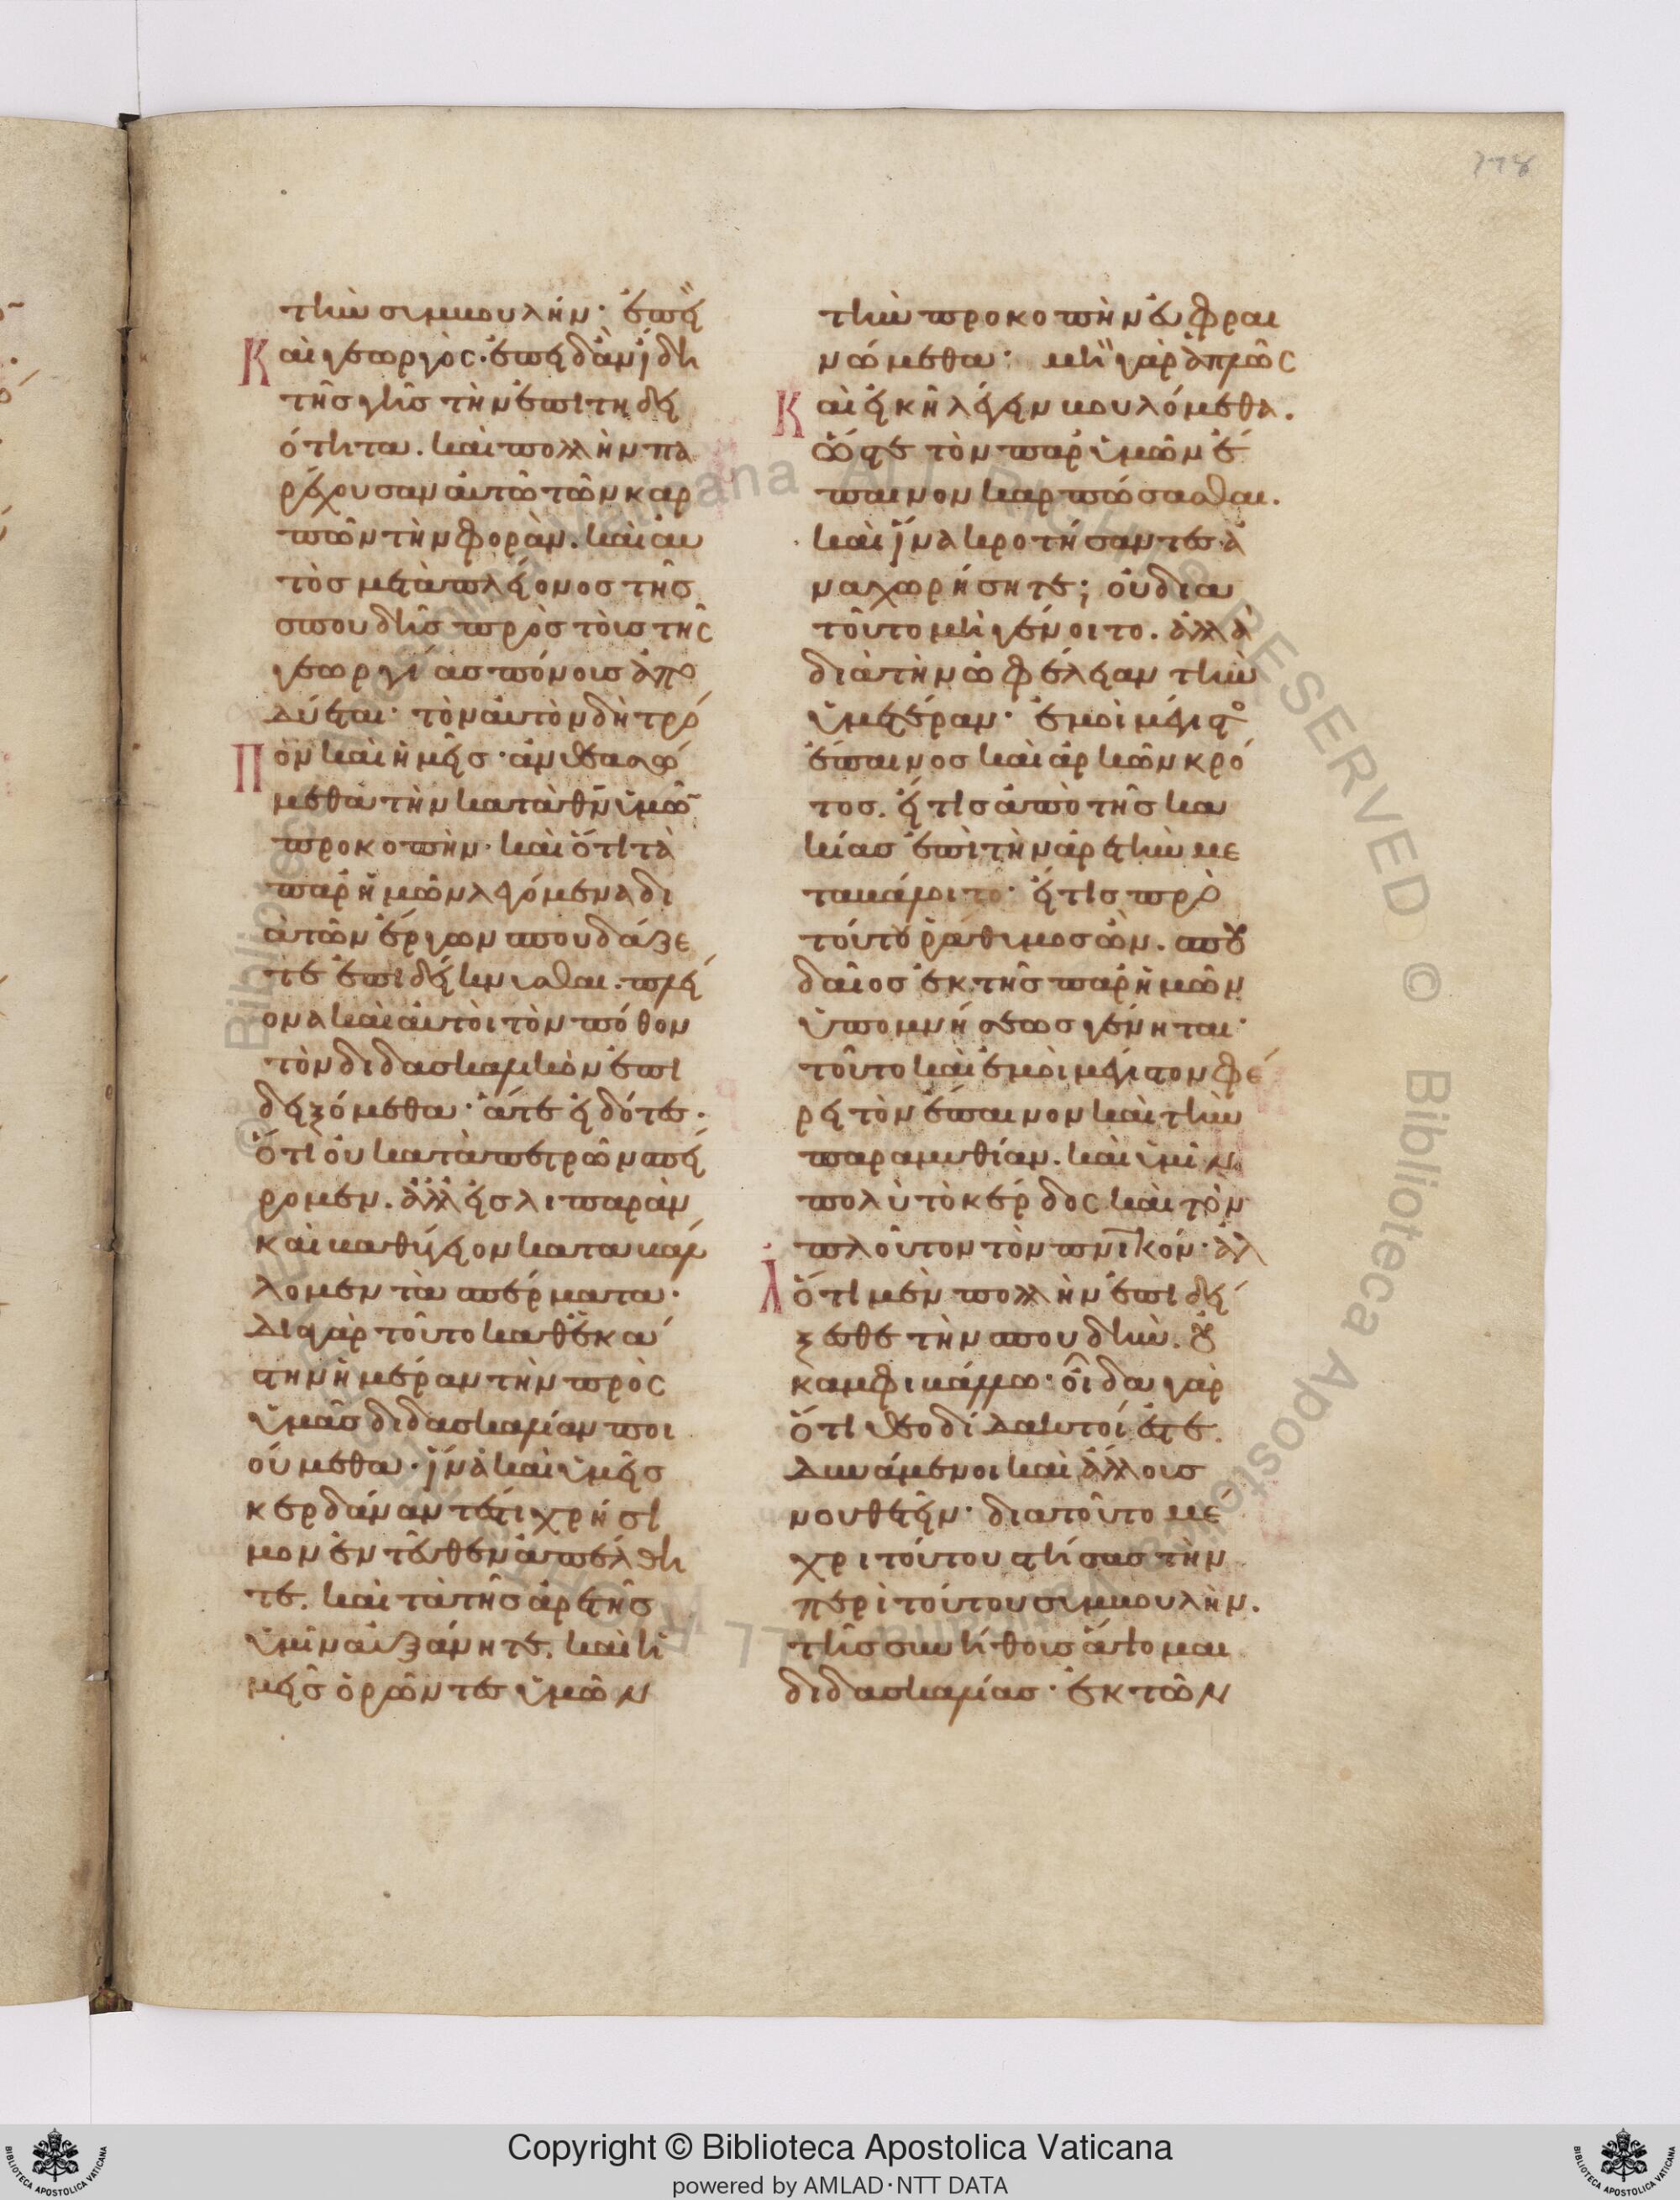 τὴν συμβουλήν· ἐπεὶ
Καὶ γεωργὸς· ἐπειδὰν ἴδη
τῆς γῆς τὴν ἐπιτηδει
ότητα. καὶ πολλὴν πα
ρέχουσαν αὐτῶ τῶν καρ
πῶν τὴν φορὰν. καὶ αυ
τὸς μετὰ πλείονος τῆς
σπουδῆς πρὸς τοὺς τῆς
γεωργίας πόνοις ἀπο
δύεται· τὸν αὐτὸν δὴ τρό
Πον καὶ ἡμεῖς· ἀνθεασώ
μεθα τὴν κατὰ θν ὑμῶ
προκοπὴν· καὶ ὅτι τὰ
παρ ἡμῶν λεγόμενα δι
ὰ τῶν ἔργων σπουδάζε
τε ἐπιδείκνυσθαι. πλεί
ονα καὶ αὐτοὶ τὸν πόθον
τὸν διδασκαλικὸν ἐπι
δειξόμεθα· ἅτε εἰδότες·
ὅτι οὐ κατὰ πετρῶν σπεί
ρομεν. ἀλλ εἰς λιπαρὰν
καὶ βαθύγειον καταβάλ
λομεν τὰ σπέρματα·
Διὰ γὰρ τοῦτο καθ ἑκά
στην ἡμέραν τὴν πρὸς
ὑμᾶς διδασκαλίαν ποι
ούμεθα· ἵνα καὶ ὑμεῖς
κερδάναντές τι χρήσι
μον ἐντεῦθεν ἀπέλθη
τε. καὶ τὰ τῆς ἀρετῆς
ὑμῖν αὐξάνητε. καὶ ἡ
μεῖς ὁρῶντες ὑμῶν
τὴν προκοπὴν εὐφραι
νώμεθα· μὴ γὰρ ἁπλῶς
Καὶ εἰκῆ λέγειν βουλόμεθα.
ὥστε τὸν παρ ὑμῶν ἔ
παινον καρπώσασθαι.
καὶ ἵνα κροτήσαντες ἀ
ναχωρήσητε; οὐ δια
τοῦτο μὴ γένοιτο. ἀλλὰ
διὰ τὴν ὠφέλειαν τὴν
ὑμετέραν· ἐμοὶ μέγιστο
ἔπαινος καὶ ἀρκῶν κρό
τος. εἴ τις ἀπὸ τῆς κα
κίας ἐπὶ τὴν ἀρετὴν με
ταβάλοιτο· εἴ τις πρὸ
τούτου ῥάθυμος ὢν. σπου
δαῖος ἐκ τῆς παρ ἡμῶν
ὑπομνήσεως γένηται·
τοῦτο καὶ ἐμοὶ μέγιστον φέ
ρει τὸν ἔπαινον καὶ τὴν
παραμυθίαν. καὶ ὑμῖν
πολὺ τὸ κέρδος καὶ τὸν
πλοῦτον τὸν πνικόν· ἀλ
Λ ὅτι μὲν πολλὴν ἐπιδεί
ξεσθε τὴν σπουδὴν. οὐ
κ ἀμφιβάλλω· οἶδα γὰρ
ὅτι θεοδίδακτοί ἐστε.
Δυνάμενοι καὶ ἄλλους
νουθετεῖν· διατοῦτο μέ
χρι τούτου στήσας τὴν
περὶ τούτου συμβουλὴν.
τῆς συνήθους ἅψομαι
διδασκαλίας· ἐκ τῶν